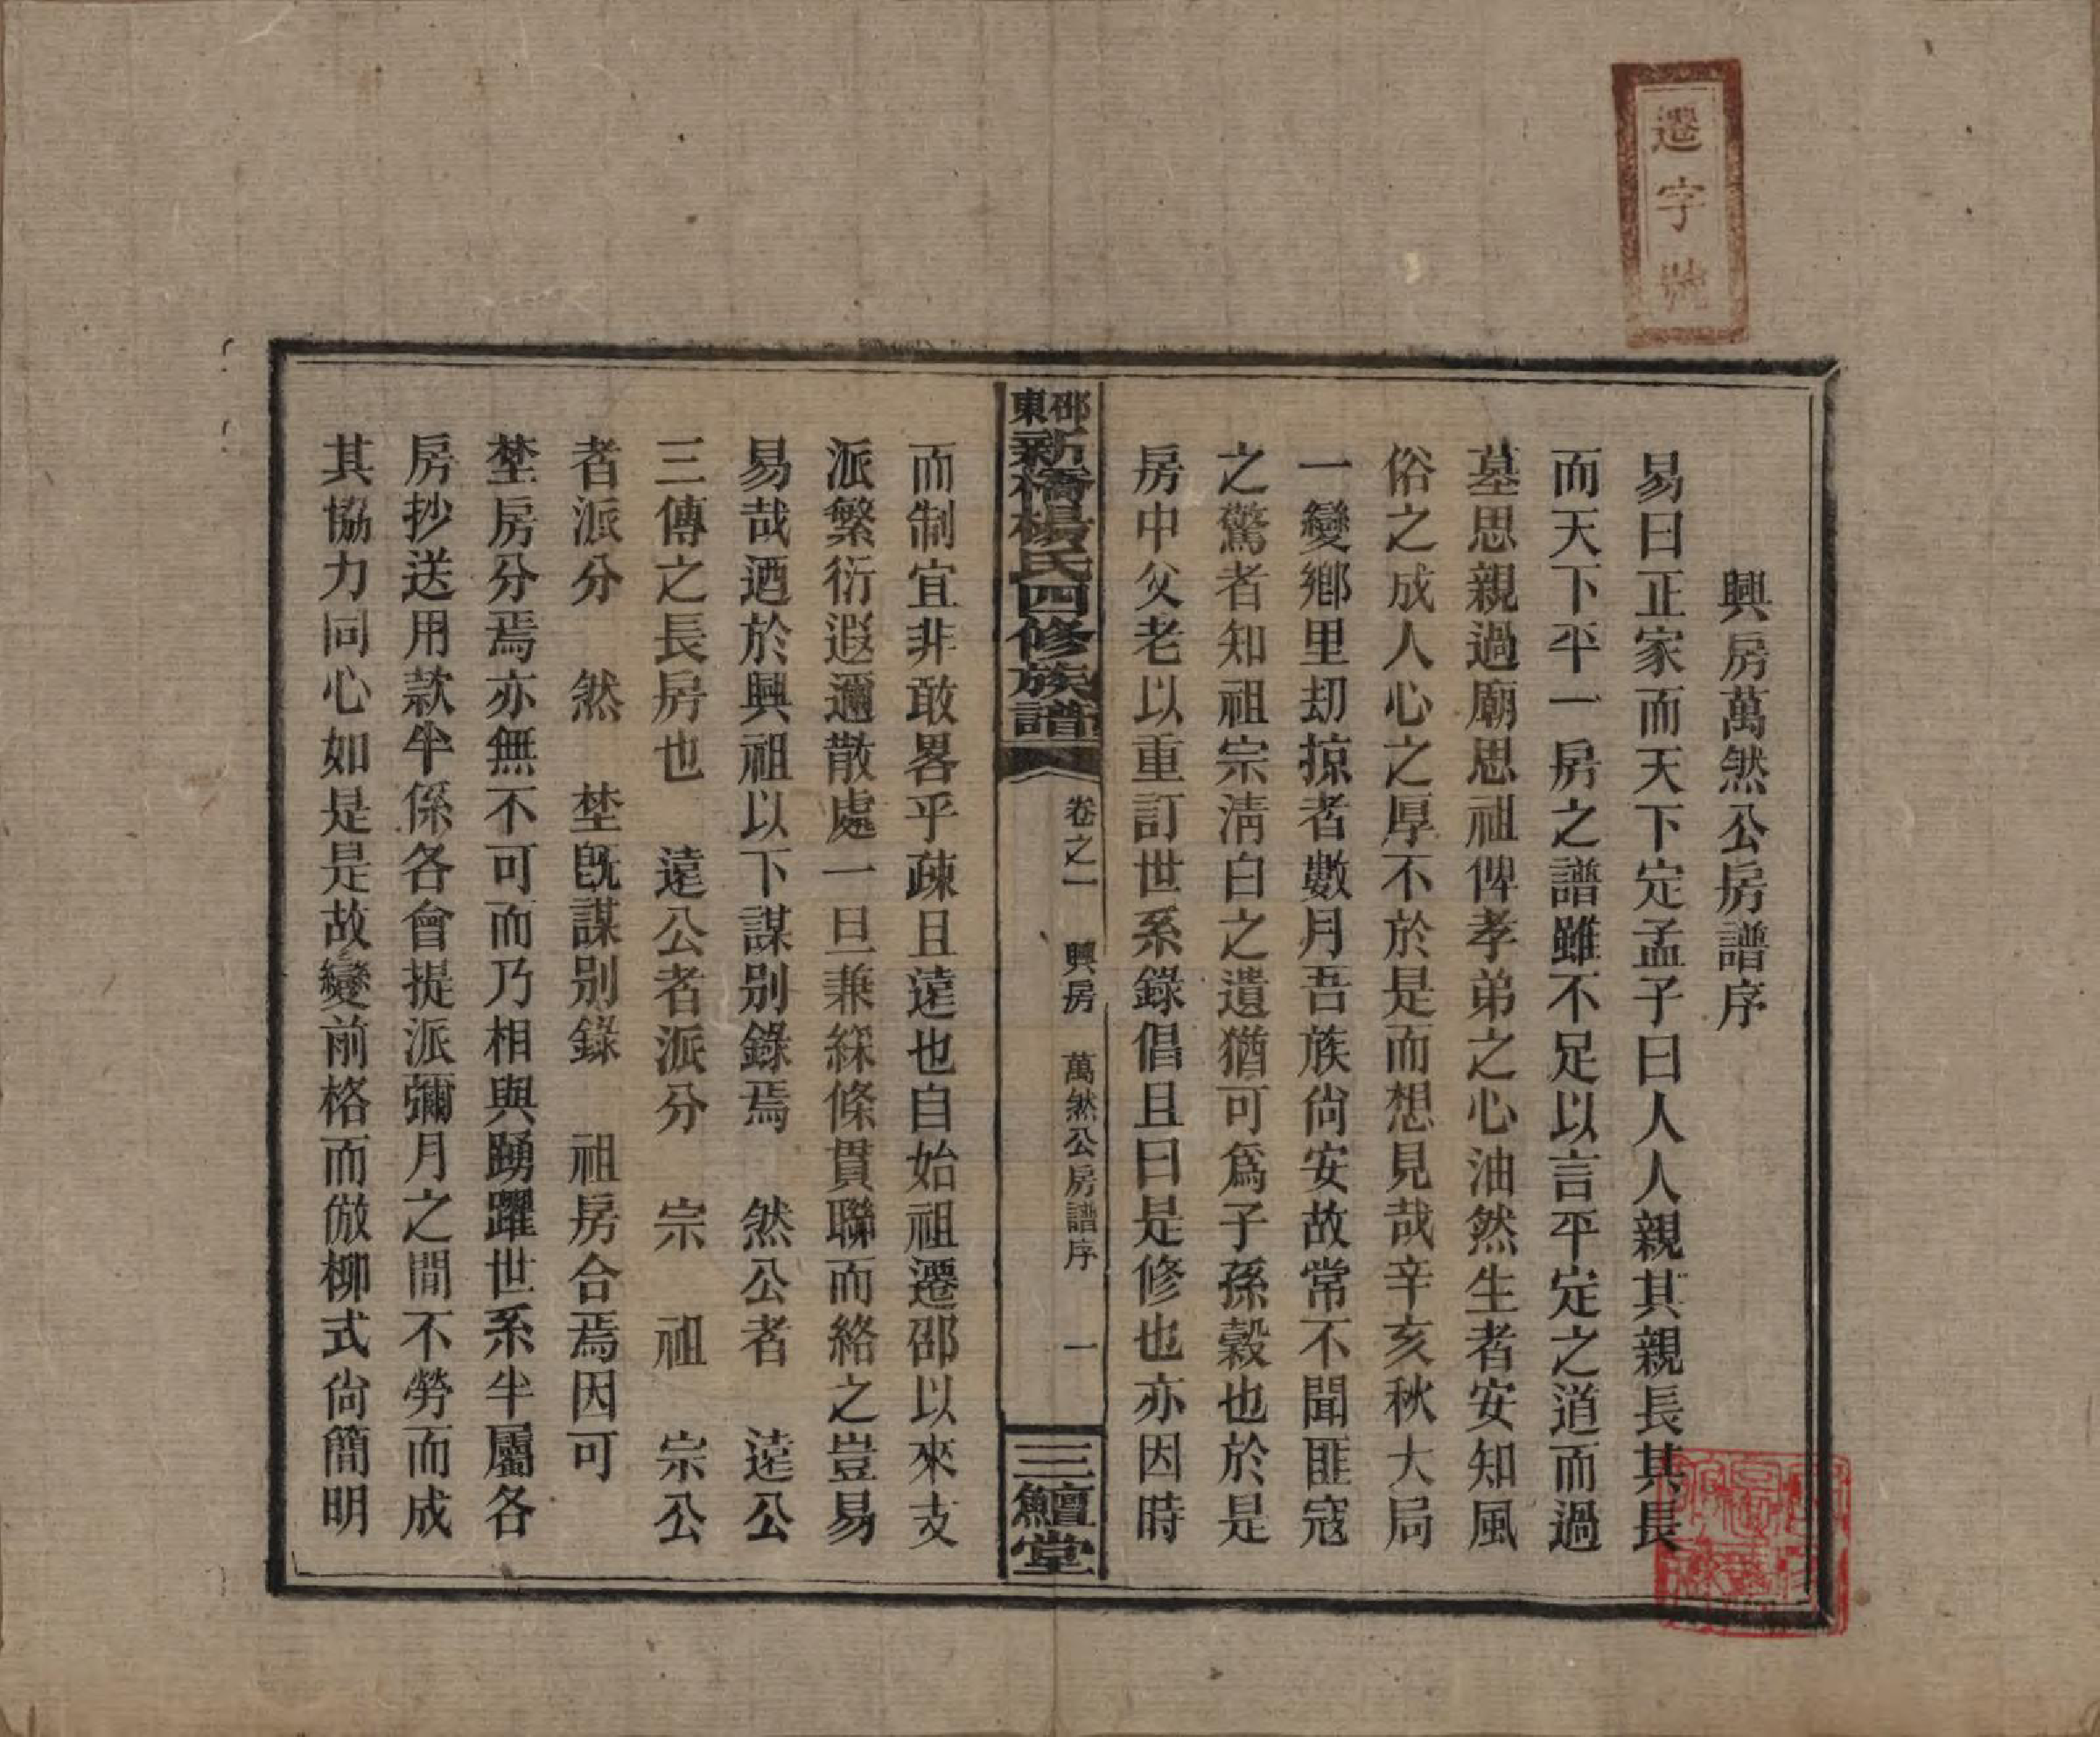 遷字號
興房萬然公房譜序
易曰正家而天下定孟子曰人人親其親長其長
而天下平一房之譜雖不足以言平定之道而過
墓思親過廟思祖俾孝弟之心油然生者安知風
俗之成人心之厚不於是而想見哉辛亥秋大局
一變鄉里刼掠者數月吾族尙安故常不聞匪寇
之驚者知祖宗淸白之遺猶可爲子孫穀也於是
房中父老以重訂世系錄倡且曰是修也亦因時
邵東新橋楊氏四修族譜
卷之一 興房 萬然公房譜序 一
三鱣堂
而制宜非敢畧乎疎且遠也自始祖遷邵以來支
派繁衍遐邇散處一旦兼綵條貫聯而絡之豈易
易哉迺於興祖以下謀別錄焉 然公者 遠公
三傳之長房也 遠公者派分 宗 祖 宗公
者派分 然 埜旣謀别錄 祖房合焉因可
埜房分焉亦無不可而乃相與踴躍世系半屬各
房抄送用款半係各會提派彌月之間不勞而成
其恊力同心如是是故變前格而倣柳式尙簡明